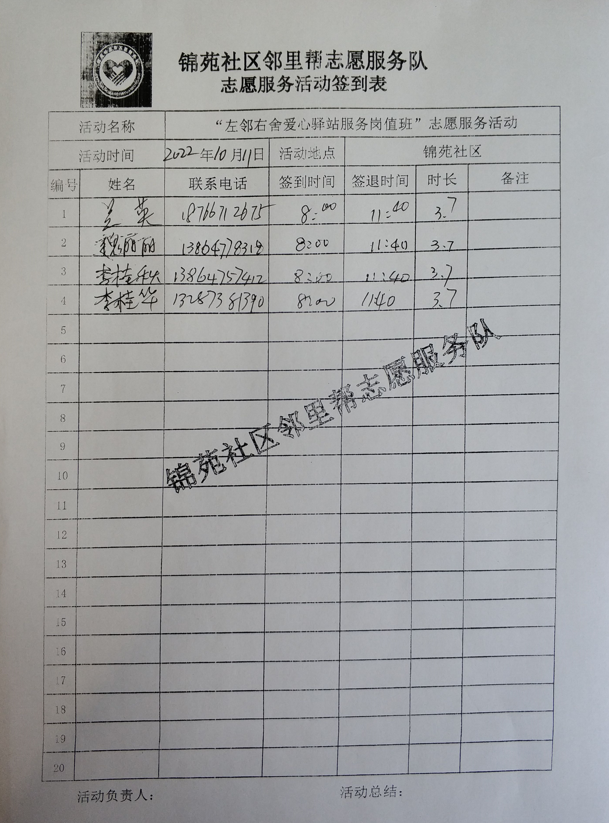 锦苑社区邻里帮志愿服务队
志愿服务活动签到表
活动名称 “左邻右舍爱心驿站服务岗值班”志愿服务活动
活动时间 2022年10月11日 活动地点 锦苑社区
编号 姓名 联系电话 签到时间 签退时间 时长 备注
1 兰英 18766712675 8:00 11:40 3.7
2 丽丽 13864778312 8:00 11:40 3.7
3 李桂秋 13864757412 8:00 11:40 3.7
4 李桂华 13287381390 8:00 11:40 3.7
5
6
7
8
9
10
11
12
13
14
15
16
17
18
19
20
锦苑社区邻里帮志愿服务队
活动负责人： 活动总结：